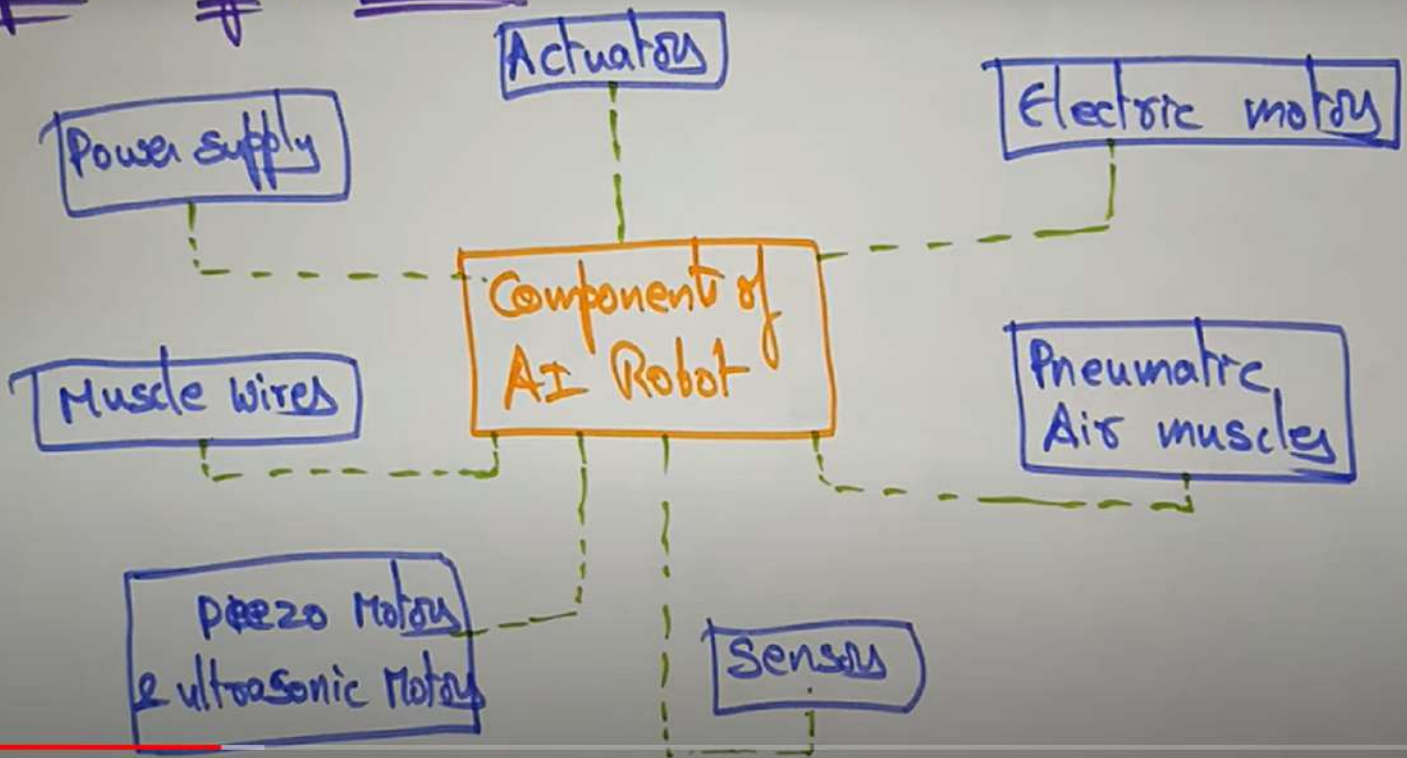 Actuators
Power supply
Electric motors
Component of
AI Robot
Muscle wires
Pneumatic,
Air muscles
Piezo Motors
& ultrasonic Motors
Sensors